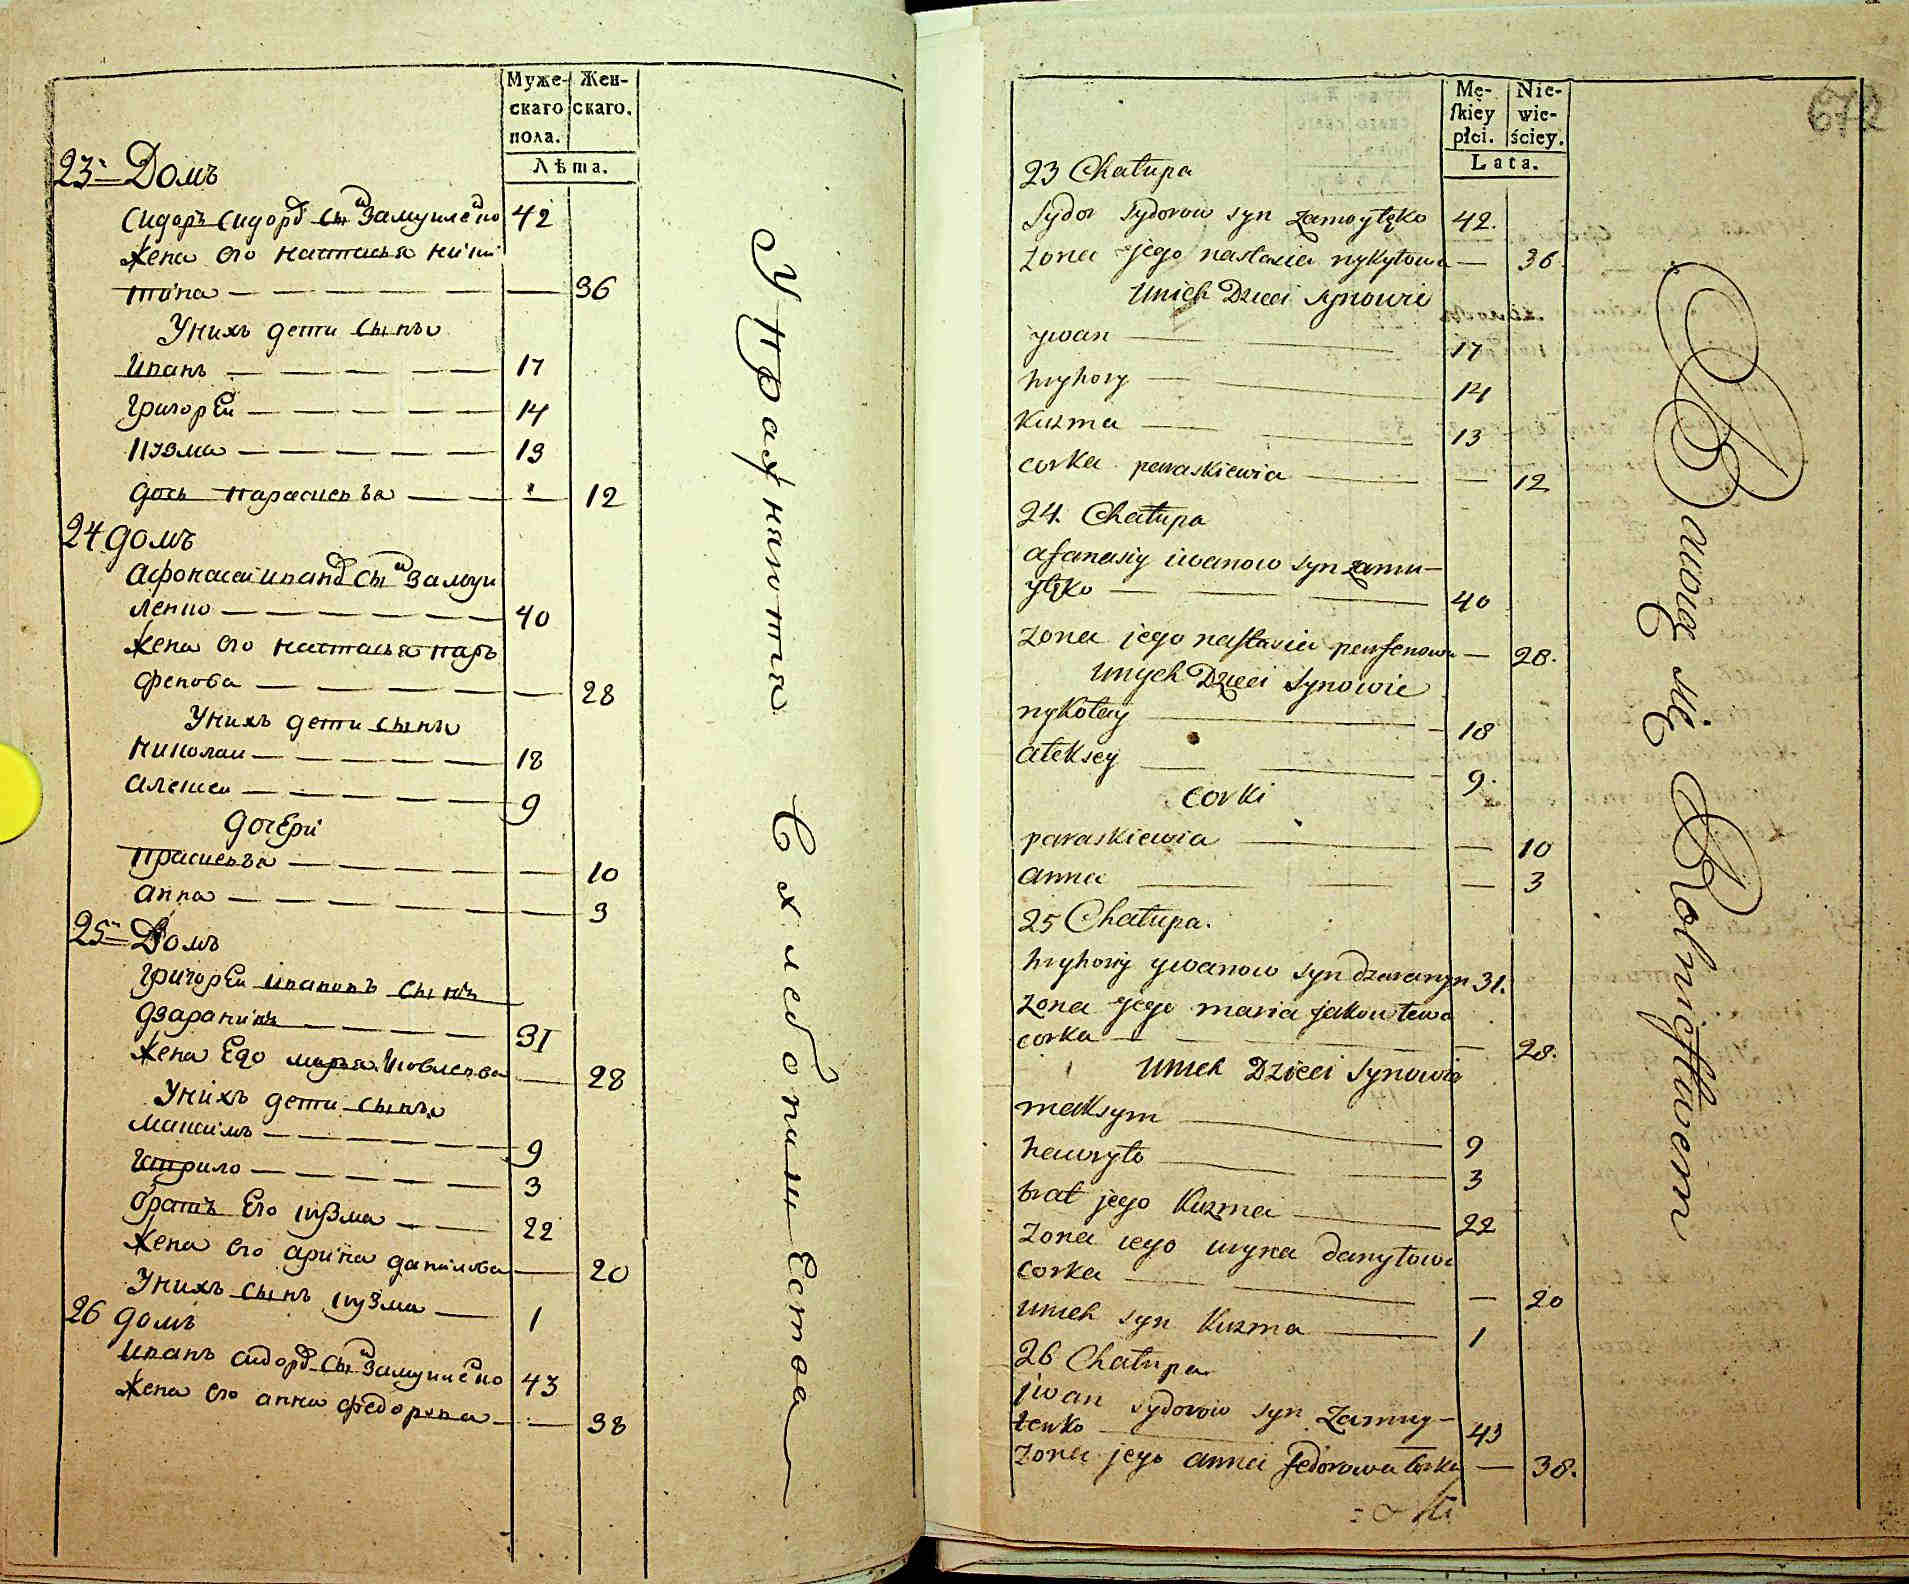 Муже-
скаго
пола.
Жен-
скаго.
Лѣта.
23. Домъ
Сидоръ Сидоровъ сынъ Замуиленко 42
Жена его Настасья Ники
тина — — — — — 36
У нихъ дети сынъи
Иванъ — — — — — 17
Григореи — — — — — 14
Кузма — — — — — 13
дочь Параскевъа — — — 12
24 домъ
Афонасеи Ивановъ сынъ Замуи
ленко — — — — — 40
Жена его Настасья Паръ
фенова — — — — — 28
У нихъ дети сынъи
Николаи — — — — — 18
Алексеи — — — — — 9
дочери
Праскевъа — — — — — 10
Анна — — — — — 3
25. Домъ
Григореи Ивановъ сынъ
Дзаранинъ — — — — — 31
Жена Его Марья Яковлевна — 28
У нихъ дети сынъи
Максимъ — — — — — 9
Гаврило — — — — — 3
братъ Его Кузма — — 22
Жена его Арина Данилова — 20
У нихъ сынъ Кузма — 1
26 домъ
Иванъ Сидоровъ сынъ Замуиленко 43
Жена его Анна Федорова — — 38
Упражняютъся в хлебопашЕстве
Mę-
skiey
płci.
Nie-
wie-
ściey.
Lata.
672
23 Chałupa
Sydor Sydorow syn zamoyłęko 42.
żona jego nastasia nykytowa — 36.
Unich Dzieci synowie
ywan — — 17
hryhory — — 14
Kuzma — — 13
corka paraskiewia — — 12
24. Chałupa
afanasiy iwanow syn zamu-
yłęko — — — 40
żona jego nastasia parfenowa — 28.
Unych Dzieci Synowie
nykołay — — 18
ałeksey — — 9.
corki
paraskiewia — — 10
anna — — — 3
25 Chałupa.
hryhory ywanow syn dzaranyn 31.
żona jego maria jakowłewa
corka — — — 28.
Unich Dzieci Synowie
maksym — 9
hawryło — — 3
brat jego Kuzma — 22
żona iego uryna danyłowa
corka — — — 20
Unich syn Kuzma — 1
26 Chałupa
jwan sydorow syn Zamuy-
łenko — — 43
żona jego anna fedorowa Corka — 38.
Bawią się Rolnictwem